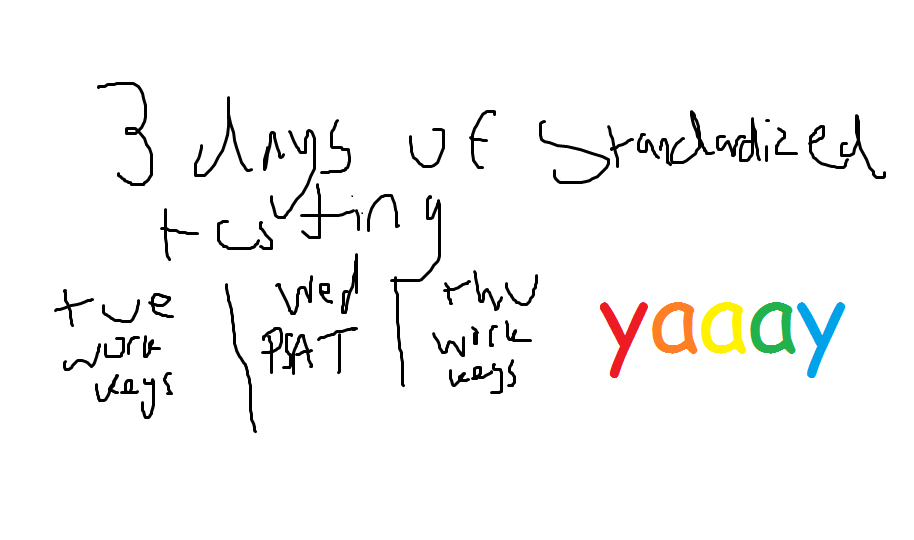 3 days of standardized
testing
tue | wed | thu
work keys | PSAT | work keys
yaaay